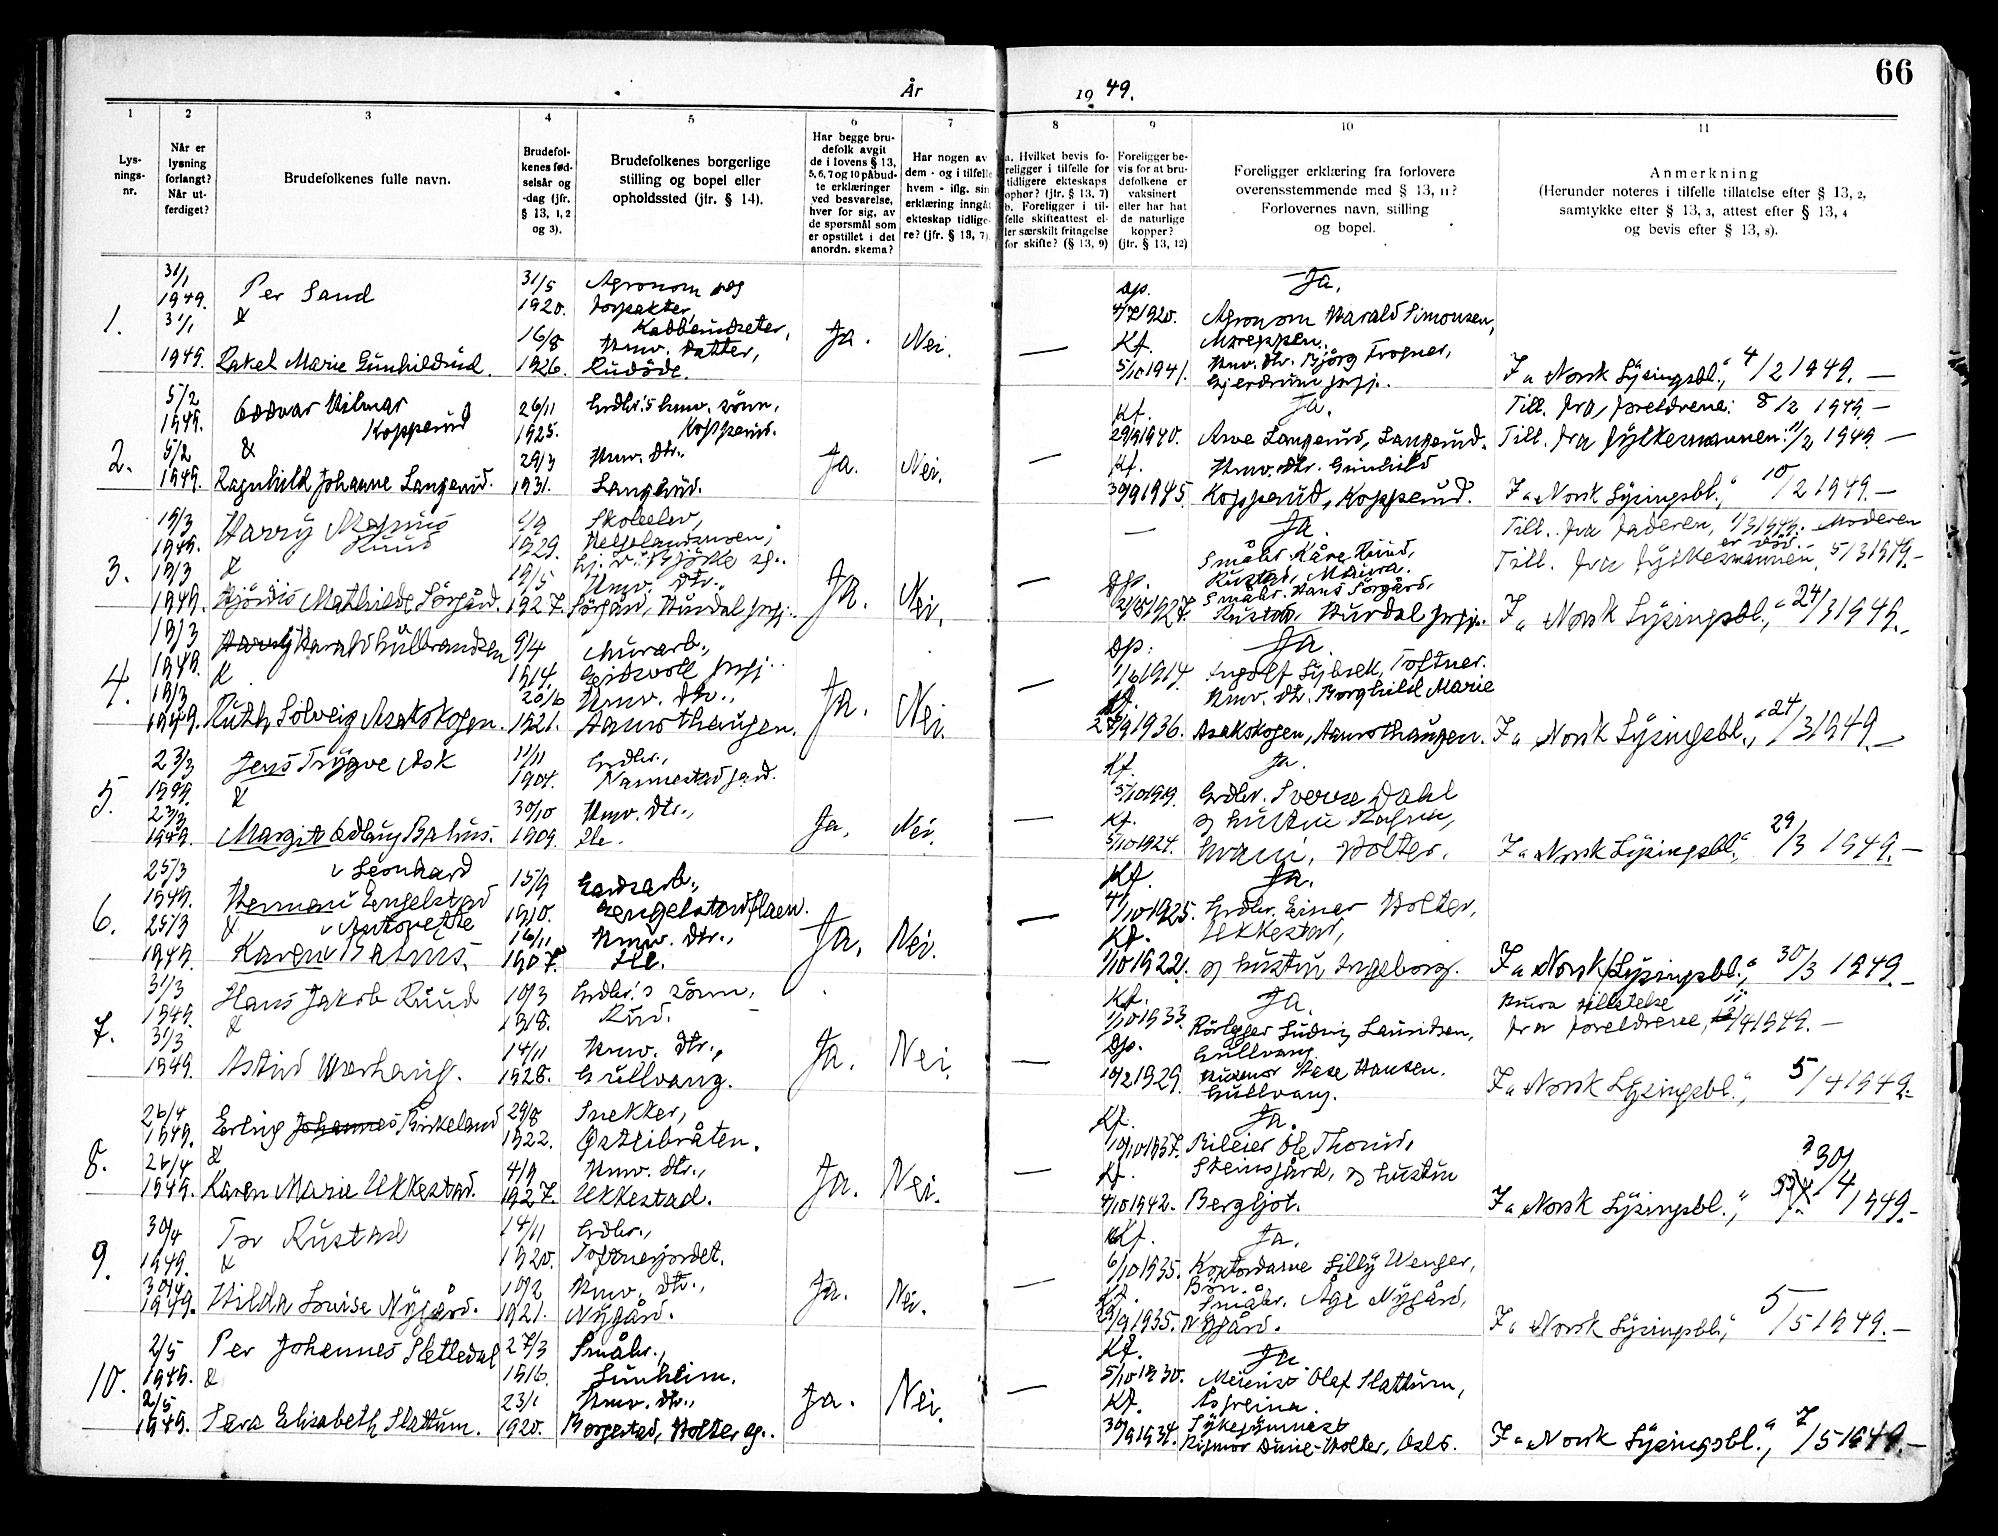 År
19 49.
66
1
2
3
4
5
6
7
8
9
10
11
Lys-
nings-
nr.
Når er
lysning
forlangt?
Når ut-
ferdiget?
Brudefolkenes fulle navn.
Brudefol-
kenes fød-
selsår og
-dag (jfr.
§ 13, 1, 2
og 3).
Brudefolkenes borgerlige
stilling og bopel eller
opholdssted (jfr. § 14).
Har begge bru-
defolk avgit
de i lovens § 13,
5, 6, 7 og 10 påbud-
te erklæringer
ved besvarelse,
hver for sig, av
de spørsmål som
er opstillet i det
anordn. skema?
Har nogen av
dem - og i tilfelle
hvem - iflg. sin
erklæring inngåt
ekteskap tidlige-
re? (jfr. § 13, 7).
a. Hvilket bevis fo-
religger i tilfelle for
tidligere ekteskaps
ophør? (jfr. § 13, 7)
b. Foreligger i til-
felle skifteattest el-
ler særskilt fritagelse
for skifte? (§ 13, 9)
Foreligger be-
vis for at bru-
defolkene er
vaksinert
eller har hat
de naturlige
kopper?
(jfr. § 13, 12)
Foreligger erklæring fra forlovere
overensstemmende med § 13, 11?
Forlovernes navn, stilling
og bopel.
Anmerkning
(Herunder noteres i tilfelle tillatelse efter § 13, 2,
samtykke efter § 13, 3, attest efter § 13, 4
og bevis efter § 13, 8).
1.
31/1
1949.
31/1
1949.
Per Sand
&
Rakel Marie Gunhildrud.
31/5
1920.
16/8
1926.
Agronom og
forpakter,
Kabberudseter,
Hmv. datter,
Rudöde.
Ja.
Nei.
—
Dp.
4/7 1920.
Kf.
5/10 1941.
Ja.
Agronom Harald Simonsen,
Mreppen.
Hmv. dtr. Björg Frogner,
Gjerdrum prgj.
I „Norsk Lysingsbl.“, 4/2 1949. —
2.
5/2
1949.
5/2
1949.
Oddvar Hilmar
Kopperud
&
Ragnhild Johanne Langerud.
26/11
1925.
29/3
1931.
Grdbr.'s hmv. sönn,
Kopperud.
Hmv. dtr.,
Langerud.
Ja.
Nei.
—
Kf.
29/9 1940.
Kf.
30/9 1945.
Ja.
Arve Langerud, Langerud.
Hmv. dtr. Gunhild
Kopperud, Kopperud.
Till. fra foreldrene: 8/2 1949. —
Till. fra fylkesmannen: 11/2 1949. —
I „Norsk Lysingsbl.“, 10/2 1949. —
3.
19/3
1949.
19/3
1949.
Harry Magnus
Ruud
&
Hjördis Mathilde Sörgård.
1929.
19/5
1927.
Skoleelev,
Hmv. dtr.,
Sörgård, Hurdal prgj.
Ja.
Nei.
—
Dp.
Ja.
Småbr. Kåre Ruud,
Rustad, Maura.
Småbr. Hans Sörgård,
Rustad, Hurdal prgj.
Till. fra faderen, 1/3 1949. Moderen
er död.
Till. fra fylkesmannen, 5/3 1949. —
I „Norsk Lysingsbl.“, 24/3 1949. —
4.
19/3
1949.
19/3
1949.
Harald Gulbrandsen
&
Ruth Solveig Aaskskogen.
9/4
1914.
20/6
1921.
Murarb.,
Eidsvoll prgj.
Hmv. dtr.,
Aamothaugen.
Ja.
Nei.
—
Dp.
1/6 1914.
Kf.
27/9 1936.
Ja.
Ingolf Lybæk, Toftner.
Hmv. dtr. Borghild Marie
Aaskskogen, Aamothaugen.
I „Norsk Lysingsbl.“, 24/3 1949. —
5.
23/3
1949.
23/3
1949.
Jens Trygve Ask
&
Margit Odlaug Bahus.
11/11
1904.
30/10
1909.
Grdbr.,
Nannestad prgj.
Hmv. dtr.,
Ile.
Ja.
Nei.
—
Kf.
5/10 1919.
Kf.
5/10 1924.
Ja.
Grdbr. Sverre Dahl
og hustru
Holter.
I „Norsk Lysingsbl.“, 29/3 1949. —
6.
25/3
1949.
25/3
1949.
v Leonhard
Herman Engelstad
& v Antonette
Karen Bahus.
15/9
1910.
16/11
1907.
Gardsarb.,
Engelstadflaen.
Hmv. dtr.,
Ile.
Ja.
Nei.
—
Kf.
4/10 1925.
Kf.
1/10 1922.
Ja.
Grdbr. Einar Holter,
Ukkestad,
og hustru Ingeborg.
I „Norsk Lysingsbl.“, 30/3 1949. —
7.
31/3
1949.
31/3
1949.
Hans Jakob Ruud
&
Astrid Værhaug.
10/3
1918.
14/11
1928.
Grdbr's sönn,
Rud.
Hmv. dtr.,
Gullvang.
Ja.
Nei.
—
Kf.
1/10 1933.
Dp.
10/2 1929.
Ja.
Rörlegger Ludvig Lauridsen,
Gullvang.
Husmor Aase Hansen.
Gullvang.
tillatelse
fra foreldrene, 12/4 1949. —
I „Norsk Lysingsbl.“, 5/4 1949. —
8.
26/4
1949.
26/4
1949.
Erling Johannes Birkeland
&
Karen Marie Ukkestad.
29/8
1922.
4/9
1927.
Snekker,
Østlibråten.
Hmv. dtr.,
Ukkestad.
Ja.
Nei.
—
Kf.
10/10 1937.
Kf.
4/10 1942.
Ja.
Bileier Ole Thorud,
Steinsgård, og hustru
Bergljot.
I „Norsk Lysingsbl.“, 30/4 1949. —
9.
30/4
1949.
30/4
1949.
Tor Rustad
&
Hilda Lovise Nygård.
14/11
1920.
10/2
1921.
Grdbr.,
Toftnerjordet.
Hmv. dtr.,
Nygård.
Ja.
Nei.
—
Kf.
6/10 1935.
Kf.
/9 1935.
Ja.
Kontordame Lilly Wenger,
Bön.
Småbr. Åge Nygård,
Nygård.
I „Norsk Lysingsbl.“, 5/5 1949. —
10.
2/5
1949.
2/5
1949.
Per Johannes Slettedal
&
Sara Elisabeth Slattum.
27/3
1916.
23/1
1920.
Småbr.,
Sunheim.
Hmv. dtr.,
Borgestad, Holter sp.
Ja.
Nei.
—
Kf.
5/10 1930.
Kf.
30/9 1934.
Ja.
Meierist Olaf Slattum,
Asgreina.
Sykegymnast
Rigmor Dune-Holter, Oslo.
I „Norsk Lysingsbl.“, 7/5 1949. —